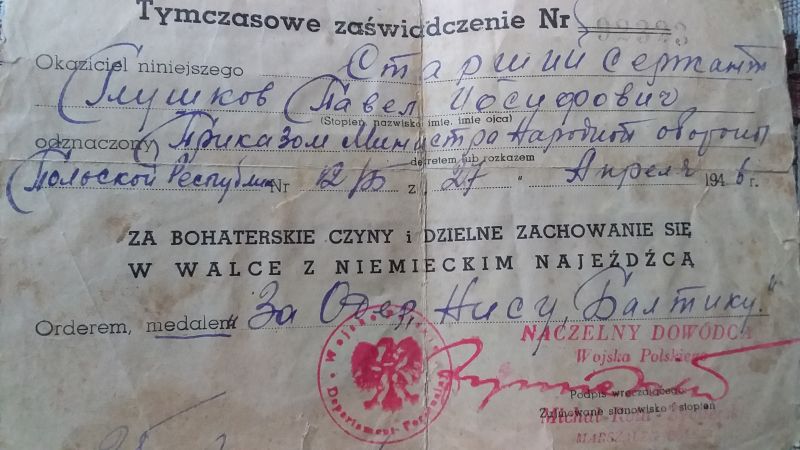 Tymczasowe zaświadczenie Nr
Okaziciel niniejszego Старший сержант
Глушков Павел Иосифович
(Stopień, nazwisko, imię, imię ojca)
odznaczony Приказом Министра Народной обороны
dekretem lub rozkazem
Польской Республики Nr z „27" Апреля 1946 r.
ZA BOHATERSKIE CZYNY i DZIELNE ZACHOWANIE SIĘ
W WALCE Z NIEMIECKIM NAJEŹDŹCĄ
Orderem, medalem „За Одер, Нису, Балтику."
NACZELNY DOWÓDCA
Wojska Polskiego
Podpis wręczającego
Zajmowane stanowisko i stopień
Michał